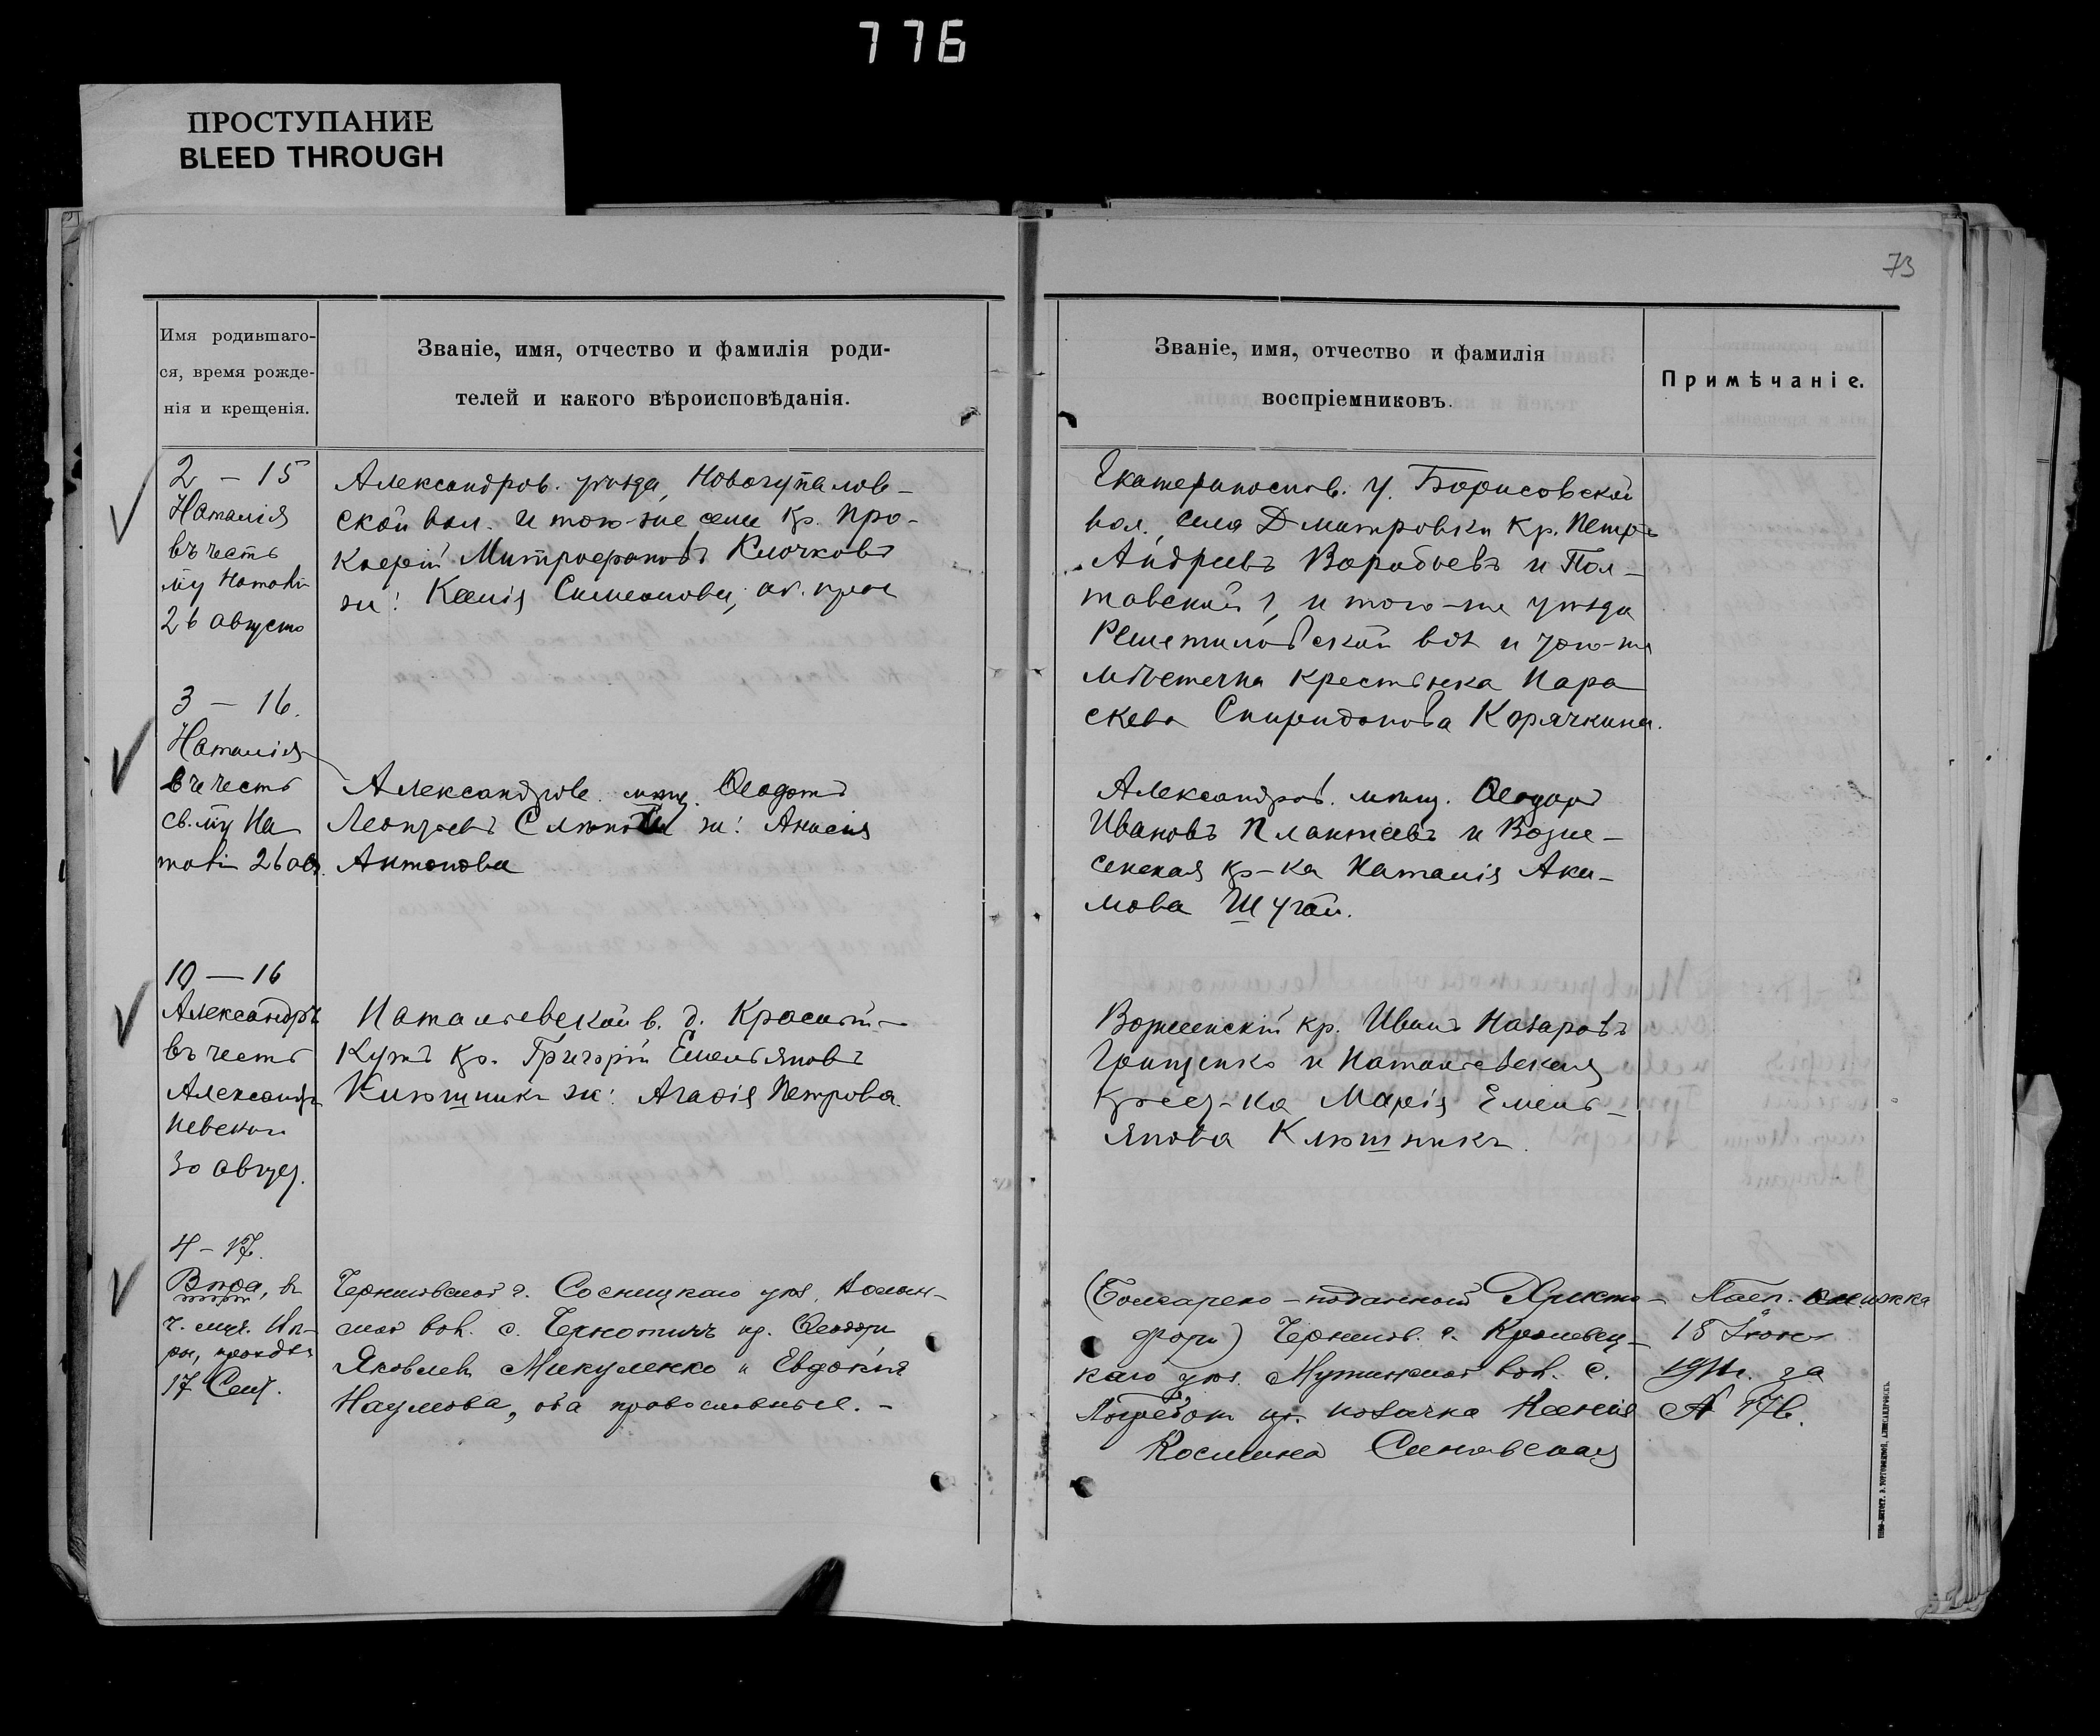 776
ПРОСТУПАНИЕ
BLEED THROUGH
73
Имя родившаго-
ся, время рожде-
нія и крещенія.
Званіе, имя, отчество и фамилія роди-
телей и какого вѣроисповѣданія.
Званіе, имя, отчество и фамилія
воспріемниковъ.
Примѣчаніе.
2 – 15
Наталія
въ честь
му Наталіи
26 августа
Александров. уѣзда, Новогупалов-
ской вол. и того-же села кр. Про-
кофій Митрофановъ Клочковъ
ж: Ксенія Симеонова,
Екатеринослав. у. Борисовской
вол., села Дмитровки кр. Петръ
Андреевъ Воробьевъ и Пол-
тавской г. и того-же уѣзда
Решетиловской вол и того-же
мѣстечка крестьянка Пара
скева Спиридонова Корячкина.
3 – 16.
Наталія
въ честь
св. му На
таліи 26 авг.
Александров. мѣщ. Ѳеодотъ
Леонтьевъ ж: Анисія
Антонова
Александров. мѣщ. Ѳеодоръ
Ивановъ Плактеевъ и Возне-
сенская кр-ка Наталія Аки-
мова Шугай.
10 – 16
Александръ
въ честь
Александра
Невскаго
30 август.
Наталіевской в. д. Красный-
Кутъ кр. Григорій Емельяновъ
Клюшникъ ж: Агафія Петрова.
Вознесенскій кр. Иванъ Назаровъ
Грищенко и Наталіевская
крест-ка Марія Емель-
янова Клюшникъ.
4 – 17.
Вѣра, въ
ч. муч.
17 Сент.
Черниговской г. Сосницкаго уѣз.
вол. с. Чернотичъ кр. Ѳеодоръ
Яковлевъ Микуленко и Евдокія
Наумова, оба православные. –
(Болгарско-подданный Христо-
форъ) Чернигов. г. Кролевец-
каго уѣз. Мутинской вол. с.
кр. козачка Ксенія
Космина Синявская
Пасп. книжка
18 Іюня
1911г. за
№ 176.